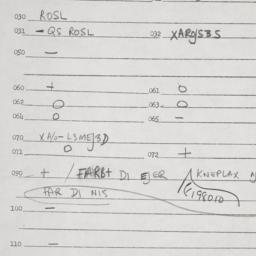 030 ROSL
031 - QS ROSL 032 XARQSBS
050 -
060 + 061 O
062 O 063 O
064 O 065 -
070 XA/0-L3ME
071 O 072 +
090 + / DI EJER KNEPLAX
FAR DI NIS 198010
100 -
110 -